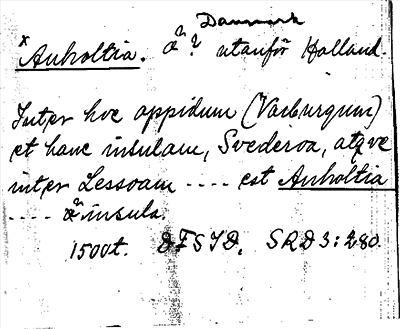 Danmark
x Anholtia. ö? utanför Halland.
Inter hoc oppidum (Varburgum)
et hanc insulam, Svederoa, atqve
inter Lessoam .... est Anholtia
.... insula.
1500t. DFSJD, SRD 3:280.